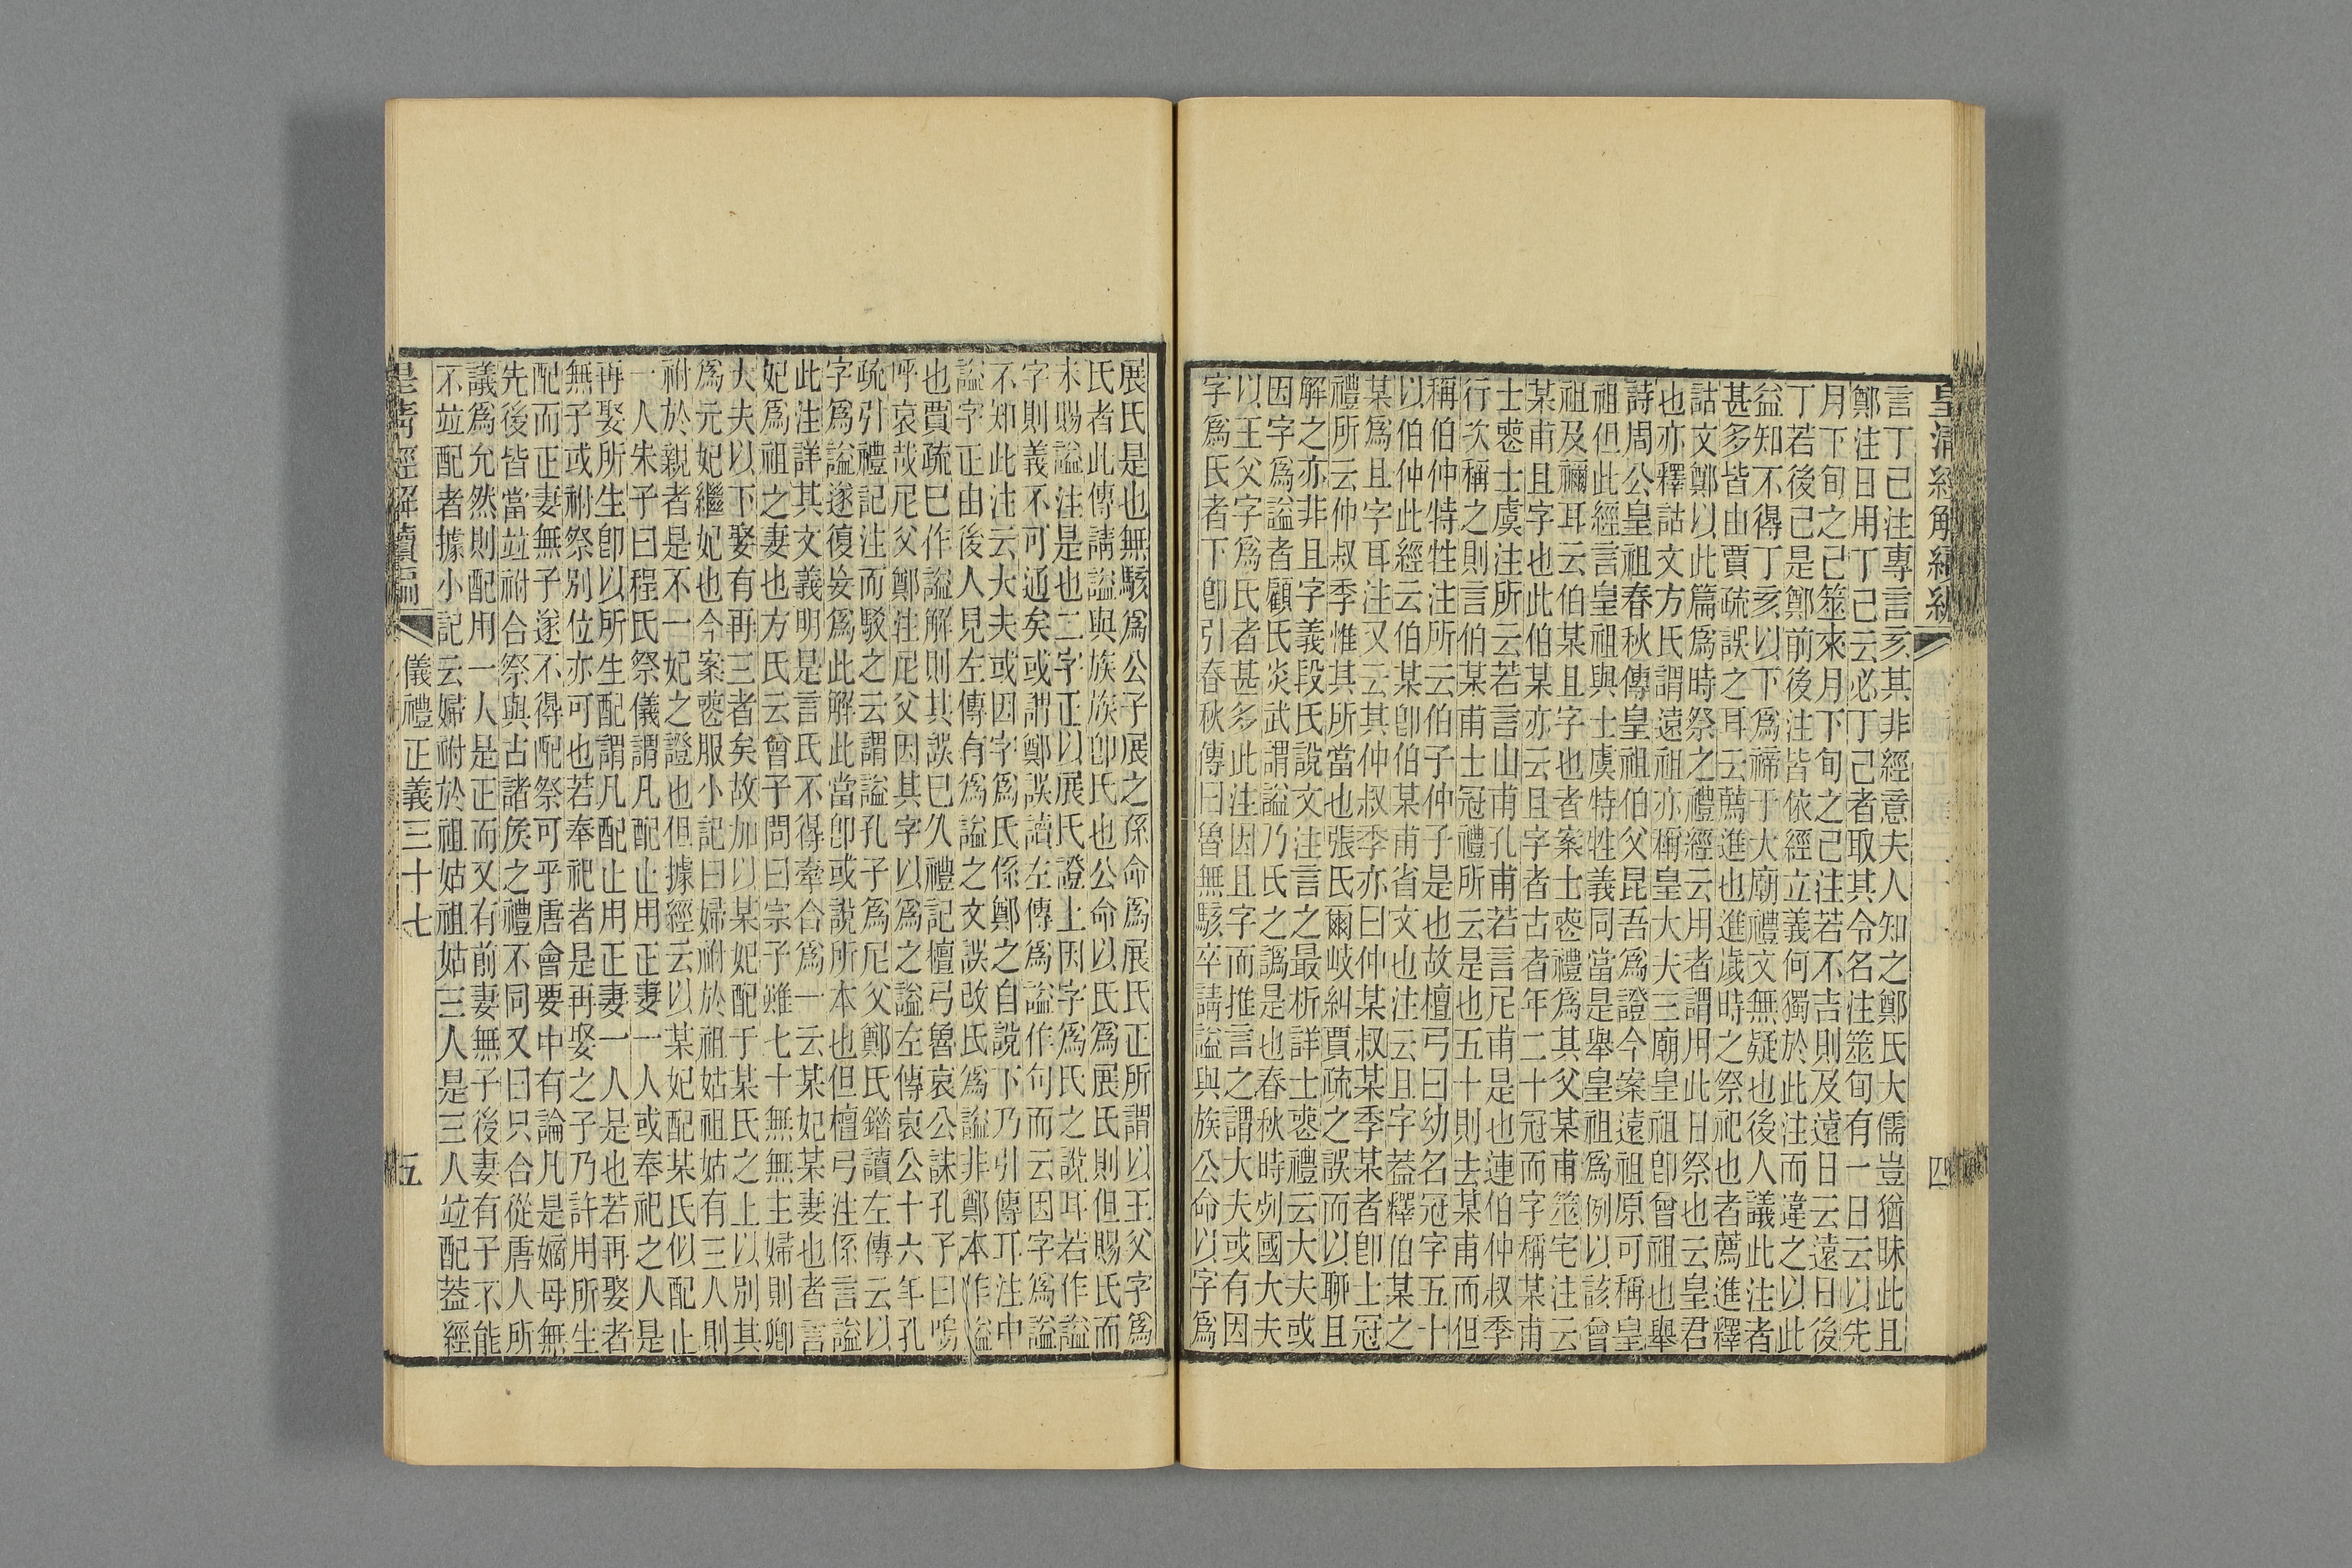 皇清經解續編
四
言丁己注專言亥其非經意夫人知之鄭氏大儒豈猶昧此且
鄭注日用丁己云必丁己者取其令名注筮旬有一日云以先
月下旬之己筮來月下旬之己注若不吉則及遠日云遠日後
丁若後己是鄭前後注皆依經立義何獨於此注而違之以此
益知不得丁亥以下爲禘于大廟禮文無疑也後人議此注者
甚多皆由賈疏誤之耳云薦進也進歲時之祭祀也者薦進釋
詁文鄭以此篇爲時祭之禮經云用者謂用此日祭也云皇君
也亦釋詁文方氏謂遠祖亦稱皇大夫三廟皇祖卽曾祖也舉
詩周公皇祖春秋傳皇祖伯父昆吾爲證今案遠祖原可稱皇
祖但此經言皇祖與士虞特牲義同當是舉皇祖爲例以該曾
祖及禰耳云伯某且字也者案士喪禮爲其父某甫筮宅注云
某甫且字也此伯某亦云且字者古者年二十冠而字稱某甫
士喪士虞注所云若言山甫孔甫若言尼甫是也連伯仲叔季
行次稱之則言伯某甫士冠禮所云是也五十則去某甫而但
稱伯仲特牲注所云伯子仲子是也故檀弓曰幼名冠字五十
以伯仲此經云伯某卽伯某甫省文也注云且字蓋釋伯某之
某爲且字耳注又云其仲叔季亦曰仲某叔某季某者卽士冠
禮所云仲叔季惟其所當也張氏爾岐糾賈疏之誤而以聊且
解之亦非且字義段氏說文注言之最析詳士喪禮云大夫或
因字爲謚者顧氏炎武謂謚乃氏之譌是也春秋時列國大夫
以王父字爲氏者甚多此注因且字而推言之謂大夫或有因
字爲氏者下卽引春秋傳曰魯無駭卒請謚與族公命以字爲
展氏是也無駭爲公子展之孫命爲展氏正所謂以王父字爲
氏者此傳請謚與族族卽氏也公命以氏爲展氏則但賜氏而
未賜謚注是也二字正以展氏證上因字爲氏之說耳若作謚
字則義不可通矣或謂鄭誤讀左傳爲謚作句而云因字爲謚
不知此注云大夫或因字爲氏係鄭之自說下乃引傳耳注中
謚字正由後人見左傳有爲謚之文誤改氏爲謚非鄭本作謚
也賈疏巳作謚解則其誤巳久禮記檀弓魯哀公誄孔子曰嗚
呼哀哉尼父鄭注尼父因其字以爲之謚左傳哀公十六年孔
疏引禮記注而駁之云謂謚孔子爲尼父鄭氏錯讀左傳云以
字爲謚遂復妄爲此解此當卽或說所本也但檀弓注係言謚
此注詳其文義明是言氏不得牽合爲一云某妃某妻也者言
妃爲祖之妻也方氏云曾子問曰宗子雖七十無無主婦則卿
大夫以下娶有再三者矣故加以某妃配于某氏之上以別其
爲元妃繼妃也今案喪服小記曰婦祔於祖姑祖姑有三人則
祔於親者是不一妃之證也但據經云以某妃配某氏似配止
一人朱子曰程氏祭儀謂凡配止用正妻一人或奉祀之人是
再娶所生卽以所生配謂凡配止用正妻一人是也若再娶者
無子或祔祭別位亦可也若奉祀者是再娶之子乃許用所生
配而正妻無子遂不得配祭可乎唐會要中有論凡是嫡母無
先後皆當竝祔合祭與古諸矦之禮不同又曰只合從唐人所
議爲允然則配用一人是正而又有前妻無子後妻有子不能
不竝配者據小記云婦祔於祖姑祖姑三人是三人竝配葢經
皇清經解續編
儀禮正義三十七
五